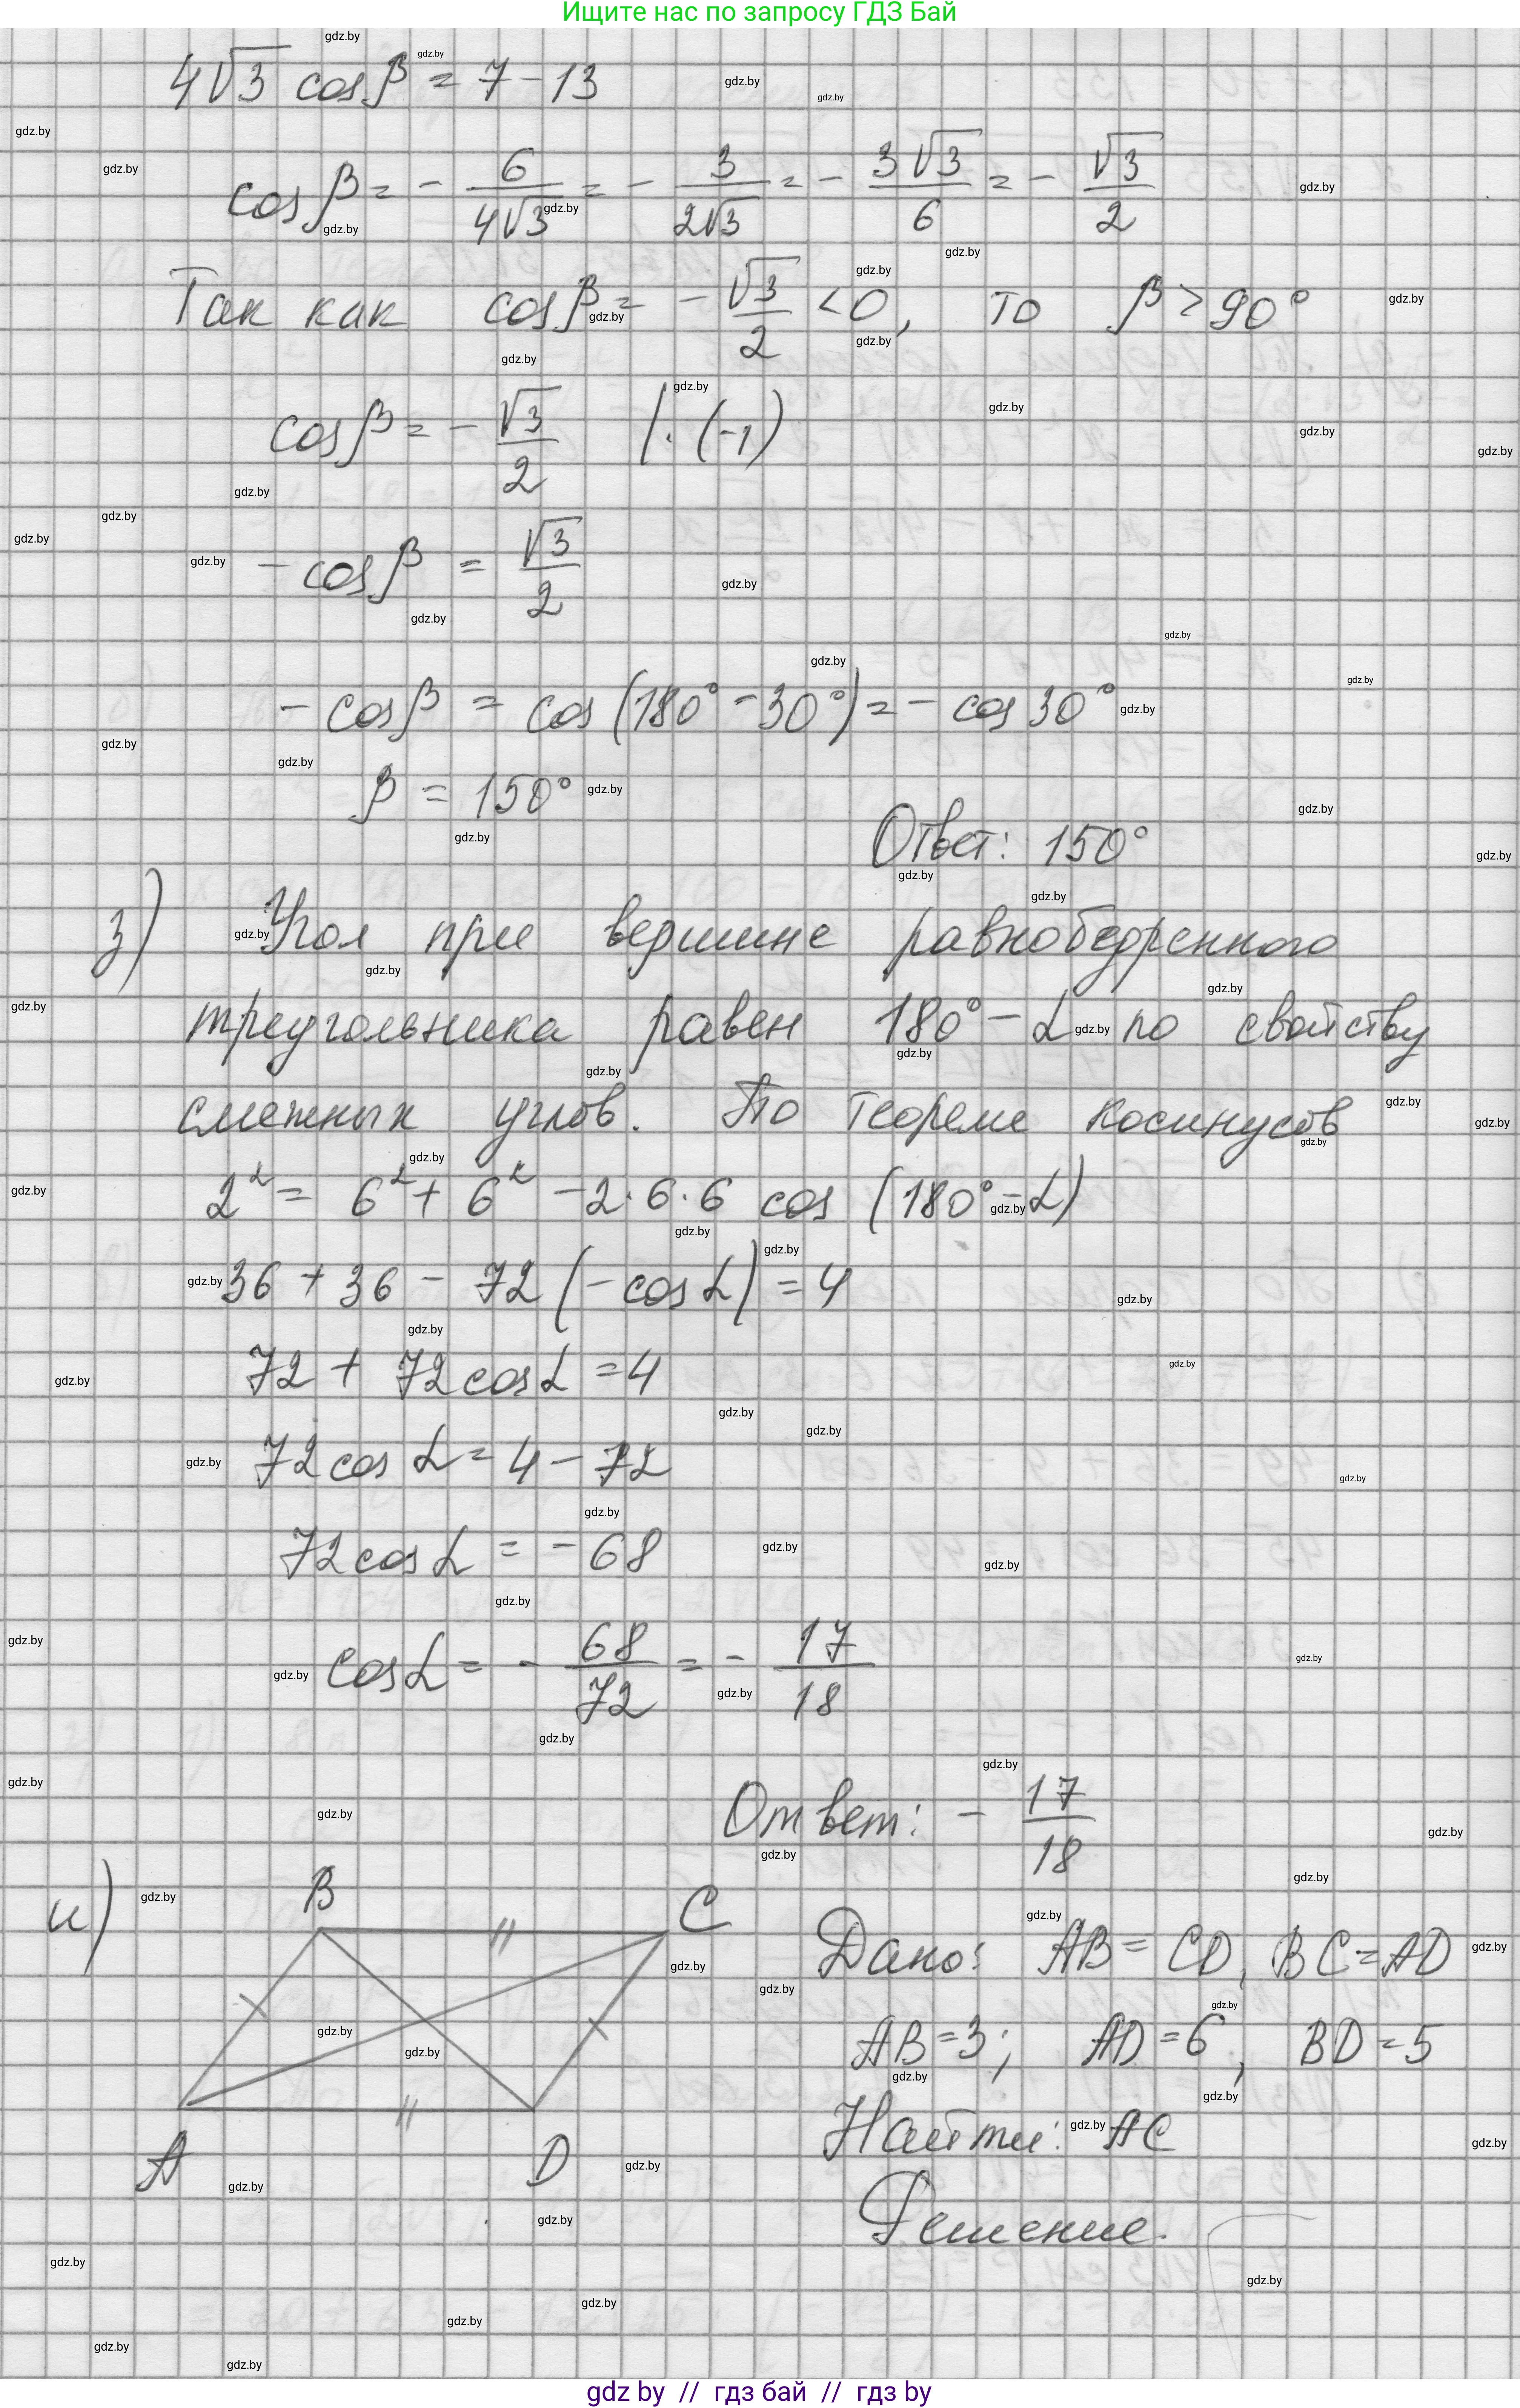 Ищите нас по запросу ГДЗ Бай
4√3 cosβ = 7 - 13
cosβ = - 6/(4√3) = - 3/(2√3) = - 3√3/6 = - √3/2
Так как cosβ = - √3/2 < 0, то β > 90°
cosβ = - √3/2 | · (-1)
- cosβ = √3/2
- cosβ = cos (180° - 30°) = - cos 30°
β = 150°
Ответ: 150°
з) Угол при вершине равнобедренного
треугольника равен 180° - α по свойству
смежных углов. По теореме косинусов
2² = 6² + 6² - 2·6·6 cos (180° - α)
36 + 36 - 72 (- cos α) = 4
72 + 72 cos α = 4
72 cos α = 4 - 72
72 cos α = - 68
cos α = - 68/72 = - 17/18
Ответ: - 17/18
и) B C
A D
Дано: AB = CD, BC = AD
AB = 3; AD = 6, BD = 5
Найти: AC
Решение.
gdz by // гдз бай // гдз by